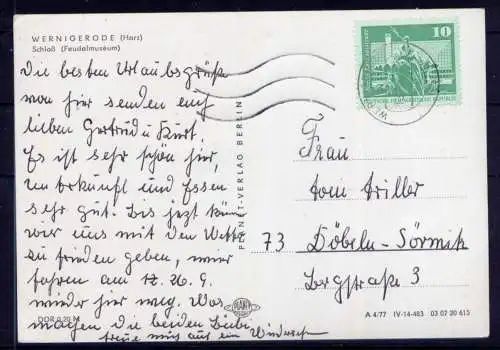 WERNIGERODE (Harz)
Schloß (Feudalmuseum)
Die besten Urlaubsgrüße
von hier senden euch
lieben Gertrud u Kurt.
Es ist sehr schön hier,
Unterkunft und Essen
sehr gut. Bis jetzt können
wir uns mit dem Wetter
zu frieden geben, wir
fahren am 26.9.
wieder hier weg. Was
machen die beiden
freue mich auf ein Wiedersehn
DDR 0,20 M
PLANET-VERLAG BERLIN
PLANET
10
Frau
Toni Triller
73 Döbeln-Sörmitz
Bergstraße 3
A 4/77 IV-14-483 03 07 20 615